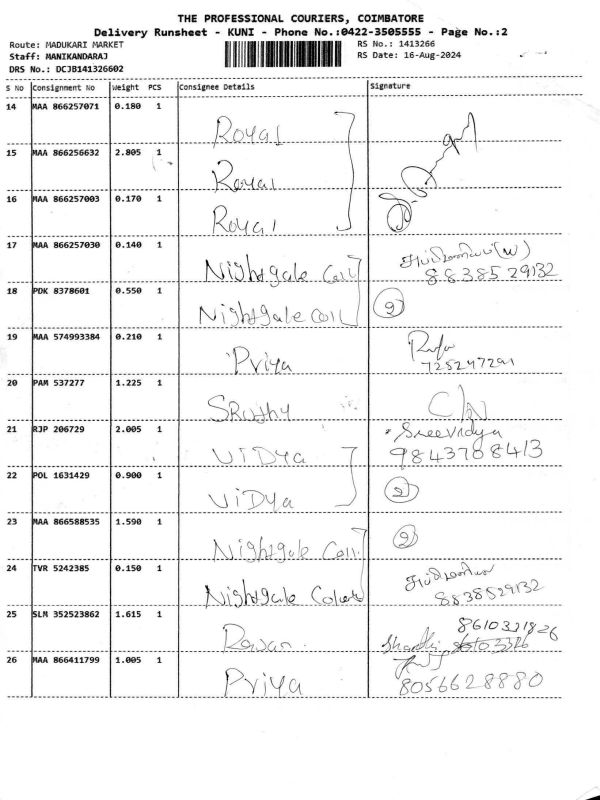 THE PROFESSIONAL COURIERS, COIMBATORE
Delivery Runsheet - KUNI - Phone No.:0422-3505555 - Page No.:2
Route: MADUKARI MARKET RS No.: 1413266
Staff: MANIKANDARAJ RS Date: 16-Aug-2024
DRS No.: DCJB141326602
S No Consignment No Weight PCS Consignee Details Signature
14 MAA 866257071 0.180 1 Royal
15 MAA 866256632 2.805 1 Royal
16 MAA 866257003 0.170 1 Royal
17 MAA 866257030 0.140 1 Nightgale Coll 8838529132
18 PDK 8378601 0.550 1 Nightgale Coll 2
19 MAA 574993384 0.210 1 Priya 725247291
20 PAM 537277 1.225 1 SRuthy C/N
21 RJP 206729 2.005 1 ViDya Sreevidya 9843708413
22 POL 1631429 0.900 1 ViDya 2
23 MAA 866588535 1.590 1 Nightgale Coll. 2
24 TVR 5242385 0.150 1 Nightgale 8838529132
25 SLM 352523862 1.615 1
26 MAA 866411799 1.005 1 Priya 8056628880